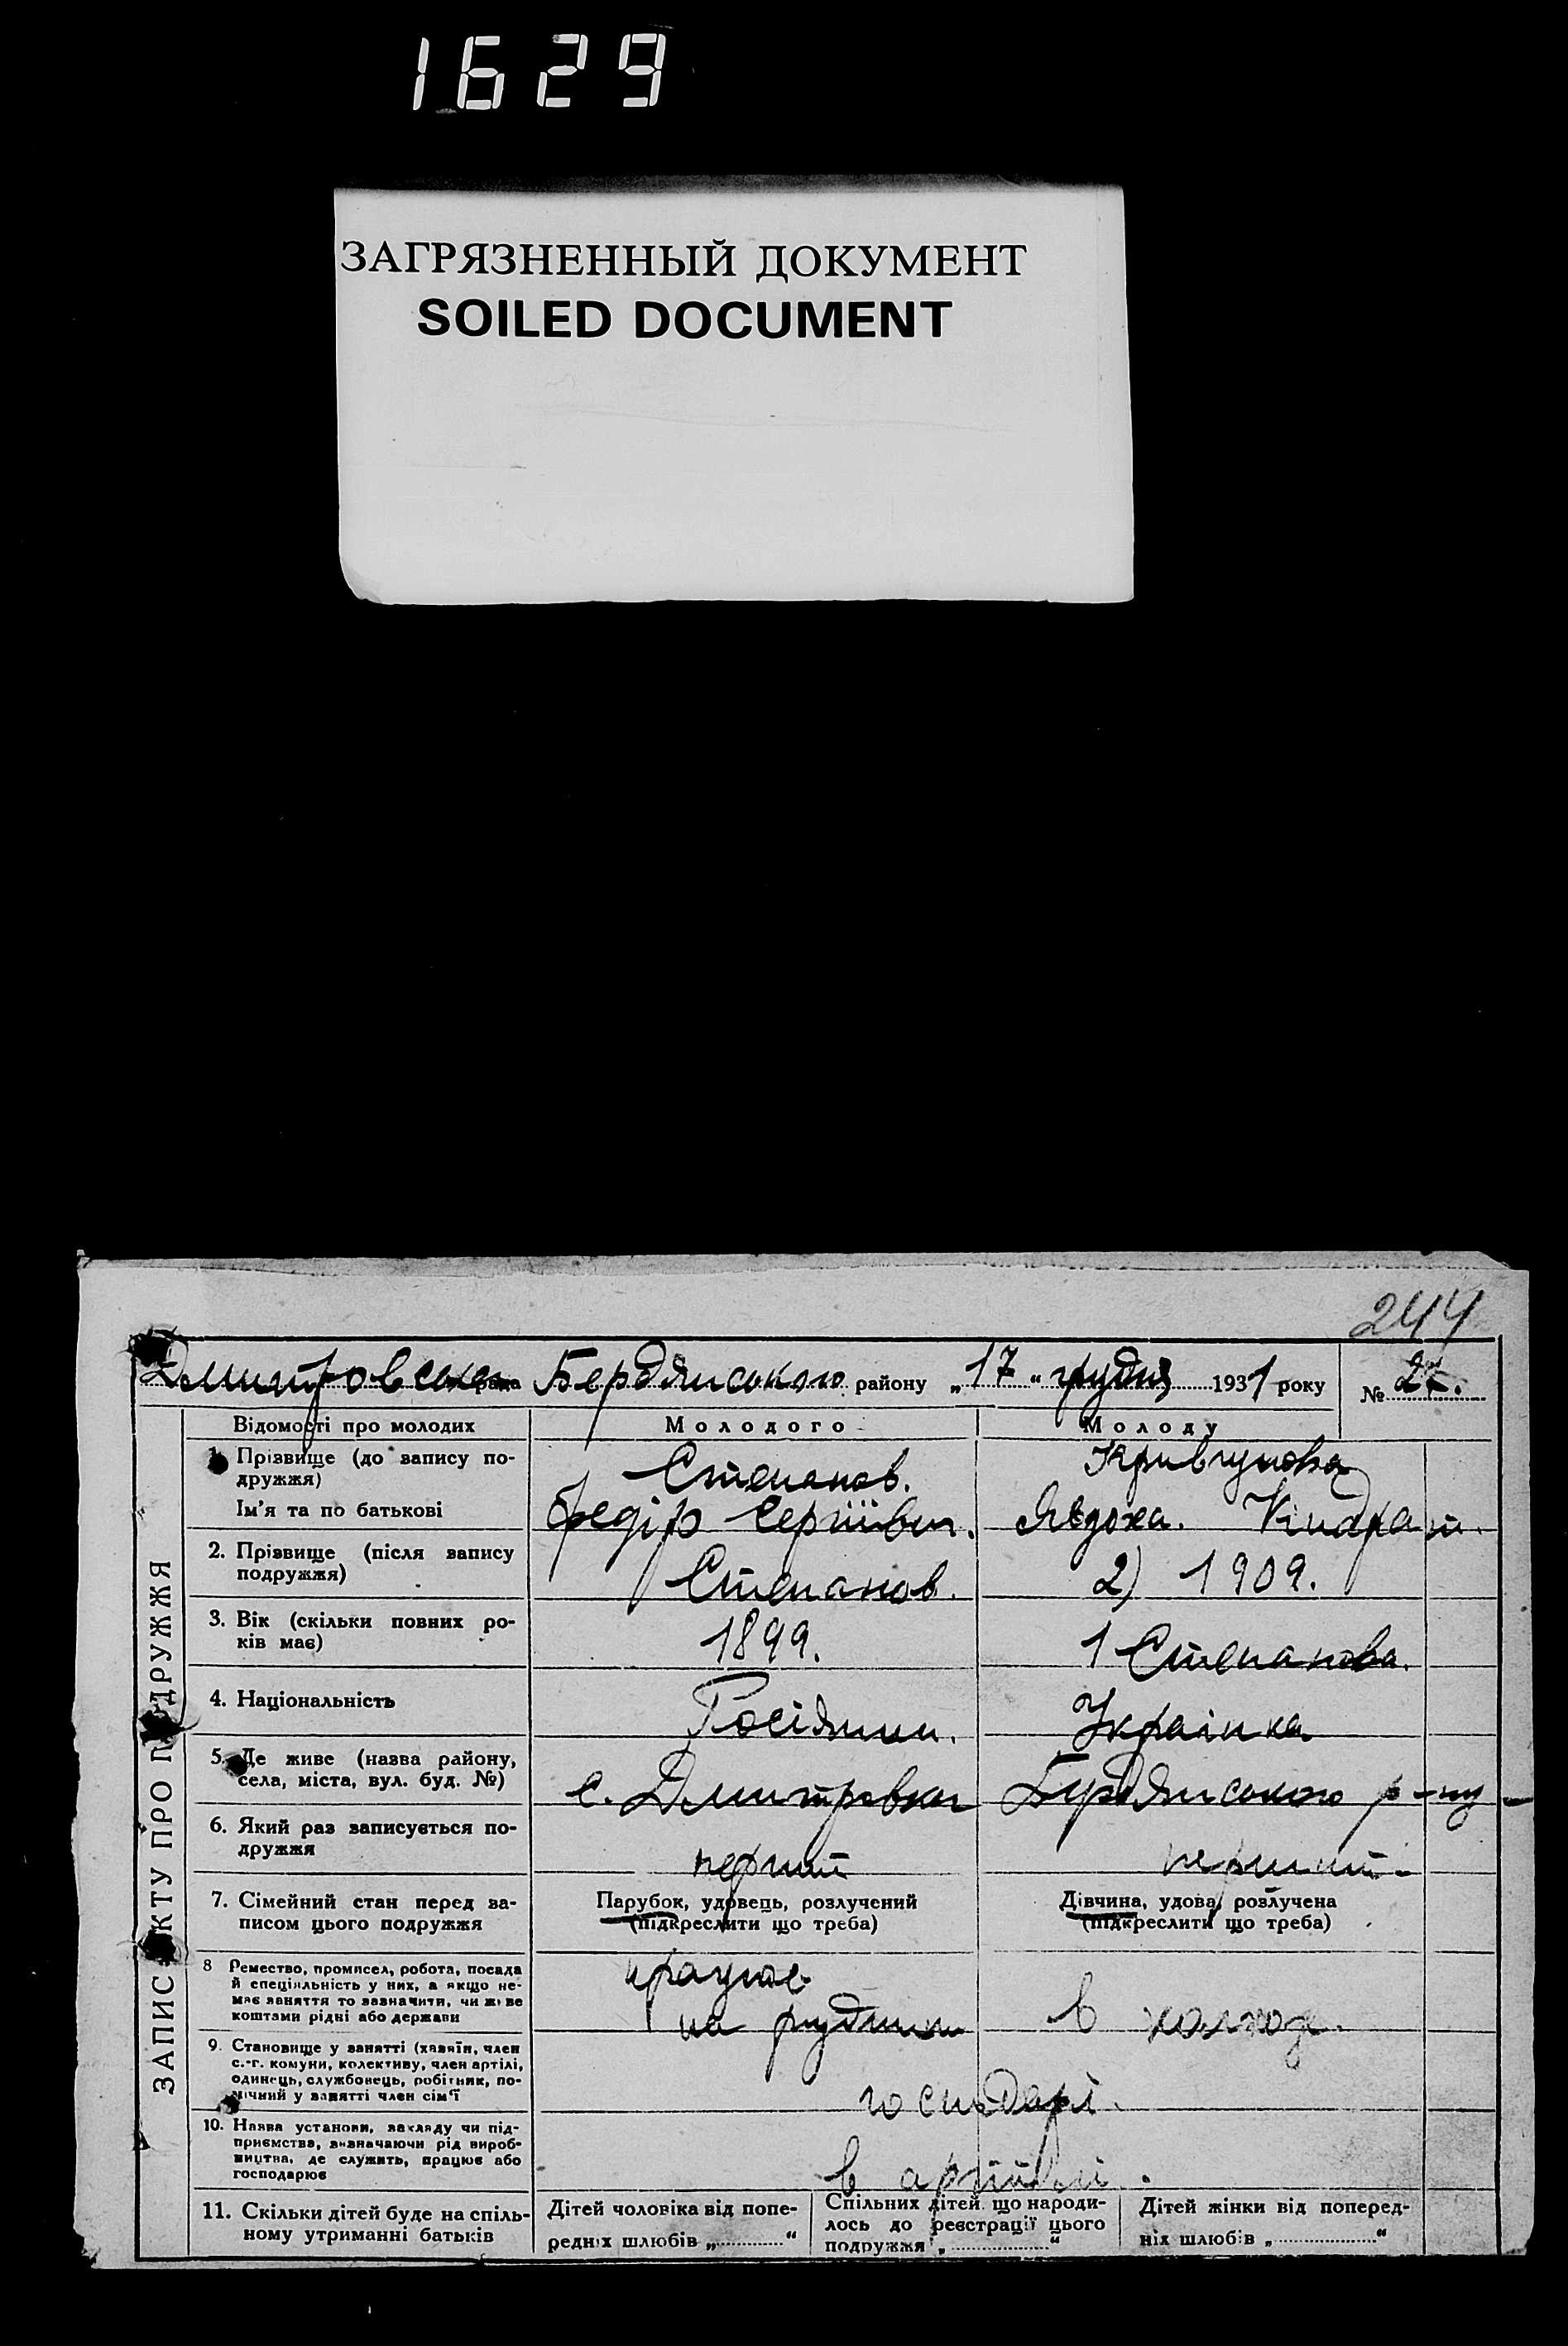 1629
ЗАГРЯЗНЕННЫЙ ДОКУМЕНТ
SOILED DOCUMENT
244
Дмитровська рада Бердянського району „17“ грудня 1931 року № 27.
ЗАПИС АКТУ ПРО ПОДРУЖЖЯ
Відомості про молодих
Молодого
Молоду
1. Прізвище (до запису по-
дружжя)
Ім'я та по батькові
Степанов.
Федір Сергіївич.
Кривчунова
Явдоха. Кіндрат.
2. Прізвище (після запису
подружжя)
Степанов.
2) 1909.
3. Вік (скільки повних ро-
ків має)
1899.
1 Степанова.
4. Національність
Росіянин.
Українка
5. Де живе (назва району,
села, міста, вул. буд. №)
с. Дмитровка Бердянського р-ну
6. Який раз записується по-
дружжя
перший
перший
7. Сімейний стан перед за-
писом цього подружжя
Парубок, удовець, розлучений
(підкреслити що треба)
Дівчина, удова, розлучена
(підкреслити що треба)
8 Ремество, промисел, робота, посада
й спеціяльність у них, а якщо не-
має заняття то зазначити, чи живе
коштами рідні або держави
працює
на рудники
в колгозі.
9. Становище у занятті (хазяїн, член
с.-г. комуни, колективу, член артілі,
одинець, службовець, робітник, по-
мічний у занятті член сім'ї
господарі.
10. Назва установи, закладу чи під-
приємства, визначаючи рід вироб-
ництва, де служить, працює або
господарює
в артілі.
11. Скільки дітей буде на спіль-
ному утриманні батьків
Дітей чоловіка від попе-
редніх шлюбів „ “
Спільних дітей, що народи-
лось до реєстрації цього
подружжя „ “
Дітей жінки від поперед-
ніх шлюбів „ “